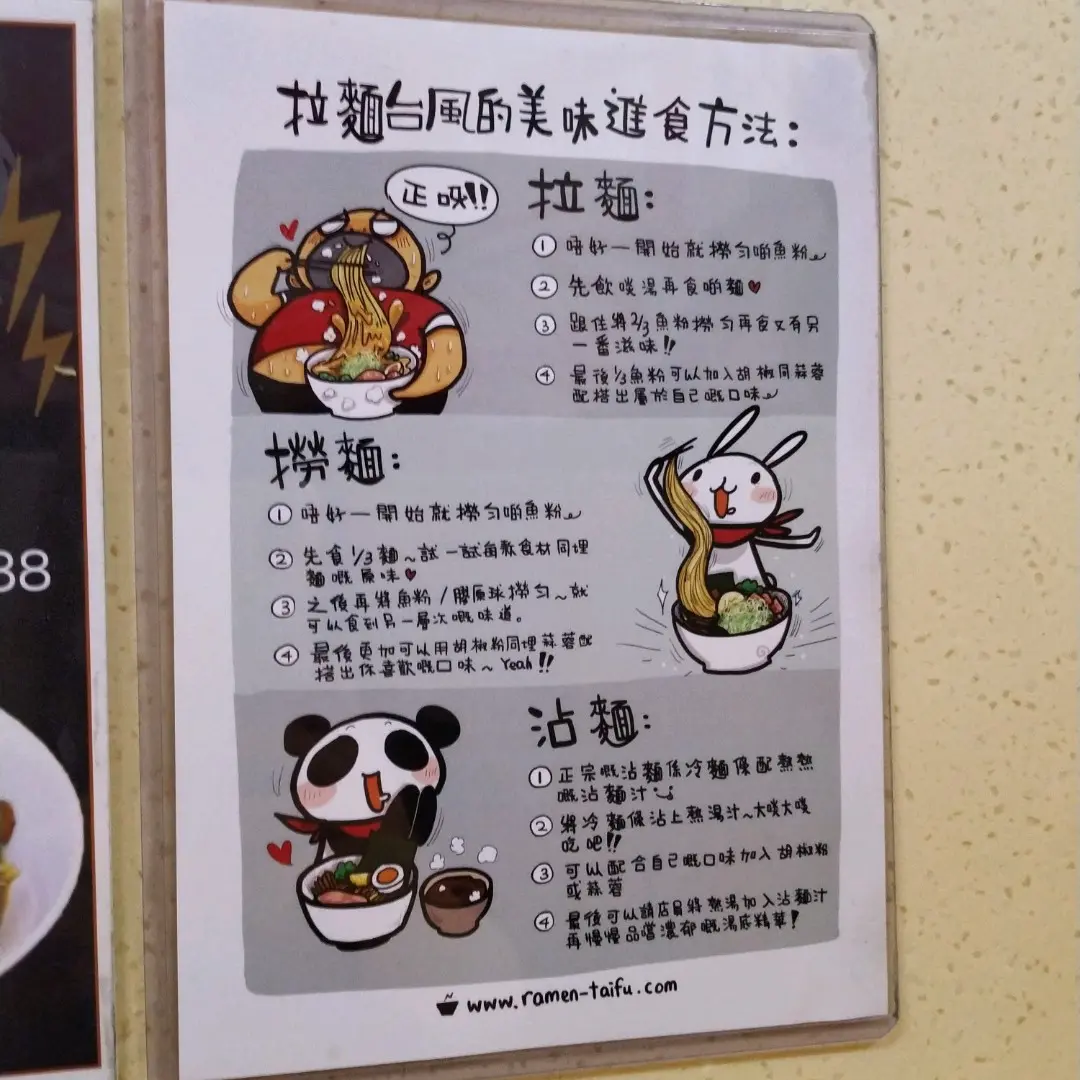 拉麵台風的美味進食方法:
正呀!!
拉麵:
① 唔好一開始就撈勻啲魚粉
② 先飲啖湯再食啲麵
③ 跟住將2/3魚粉撈勻再食又有另
一番滋味!!
④ 最後1/3魚粉可以加入胡椒同蒜蓉
配搭出屬於自己嘅口味
撈麵:
① 唔好一開始就撈勻啲魚粉
② 先食1/3麵~試一試每款食材同埋
麵嘅原味
③ 之後再將魚粉/膠原球撈勻~就
可以食到另一層次嘅味道。
④ 最後更加可以用胡椒粉同埋蒜蓉配
搭出你喜歡嘅口味~Yeah!!
沾麵:
① 正宗嘅沾麵係冷麵條配熱熱
嘅沾麵汁
② 將冷麵條沾上熱湯汁~大啖大啖
吃吧!!
③ 可以配合自己嘅口味加入胡椒粉
或蒜蓉
④ 最後可以請店員將熱湯加入沾麵汁
再慢慢品嚐濃郁嘅湯底精華!
www.ramen-taifu.com
88